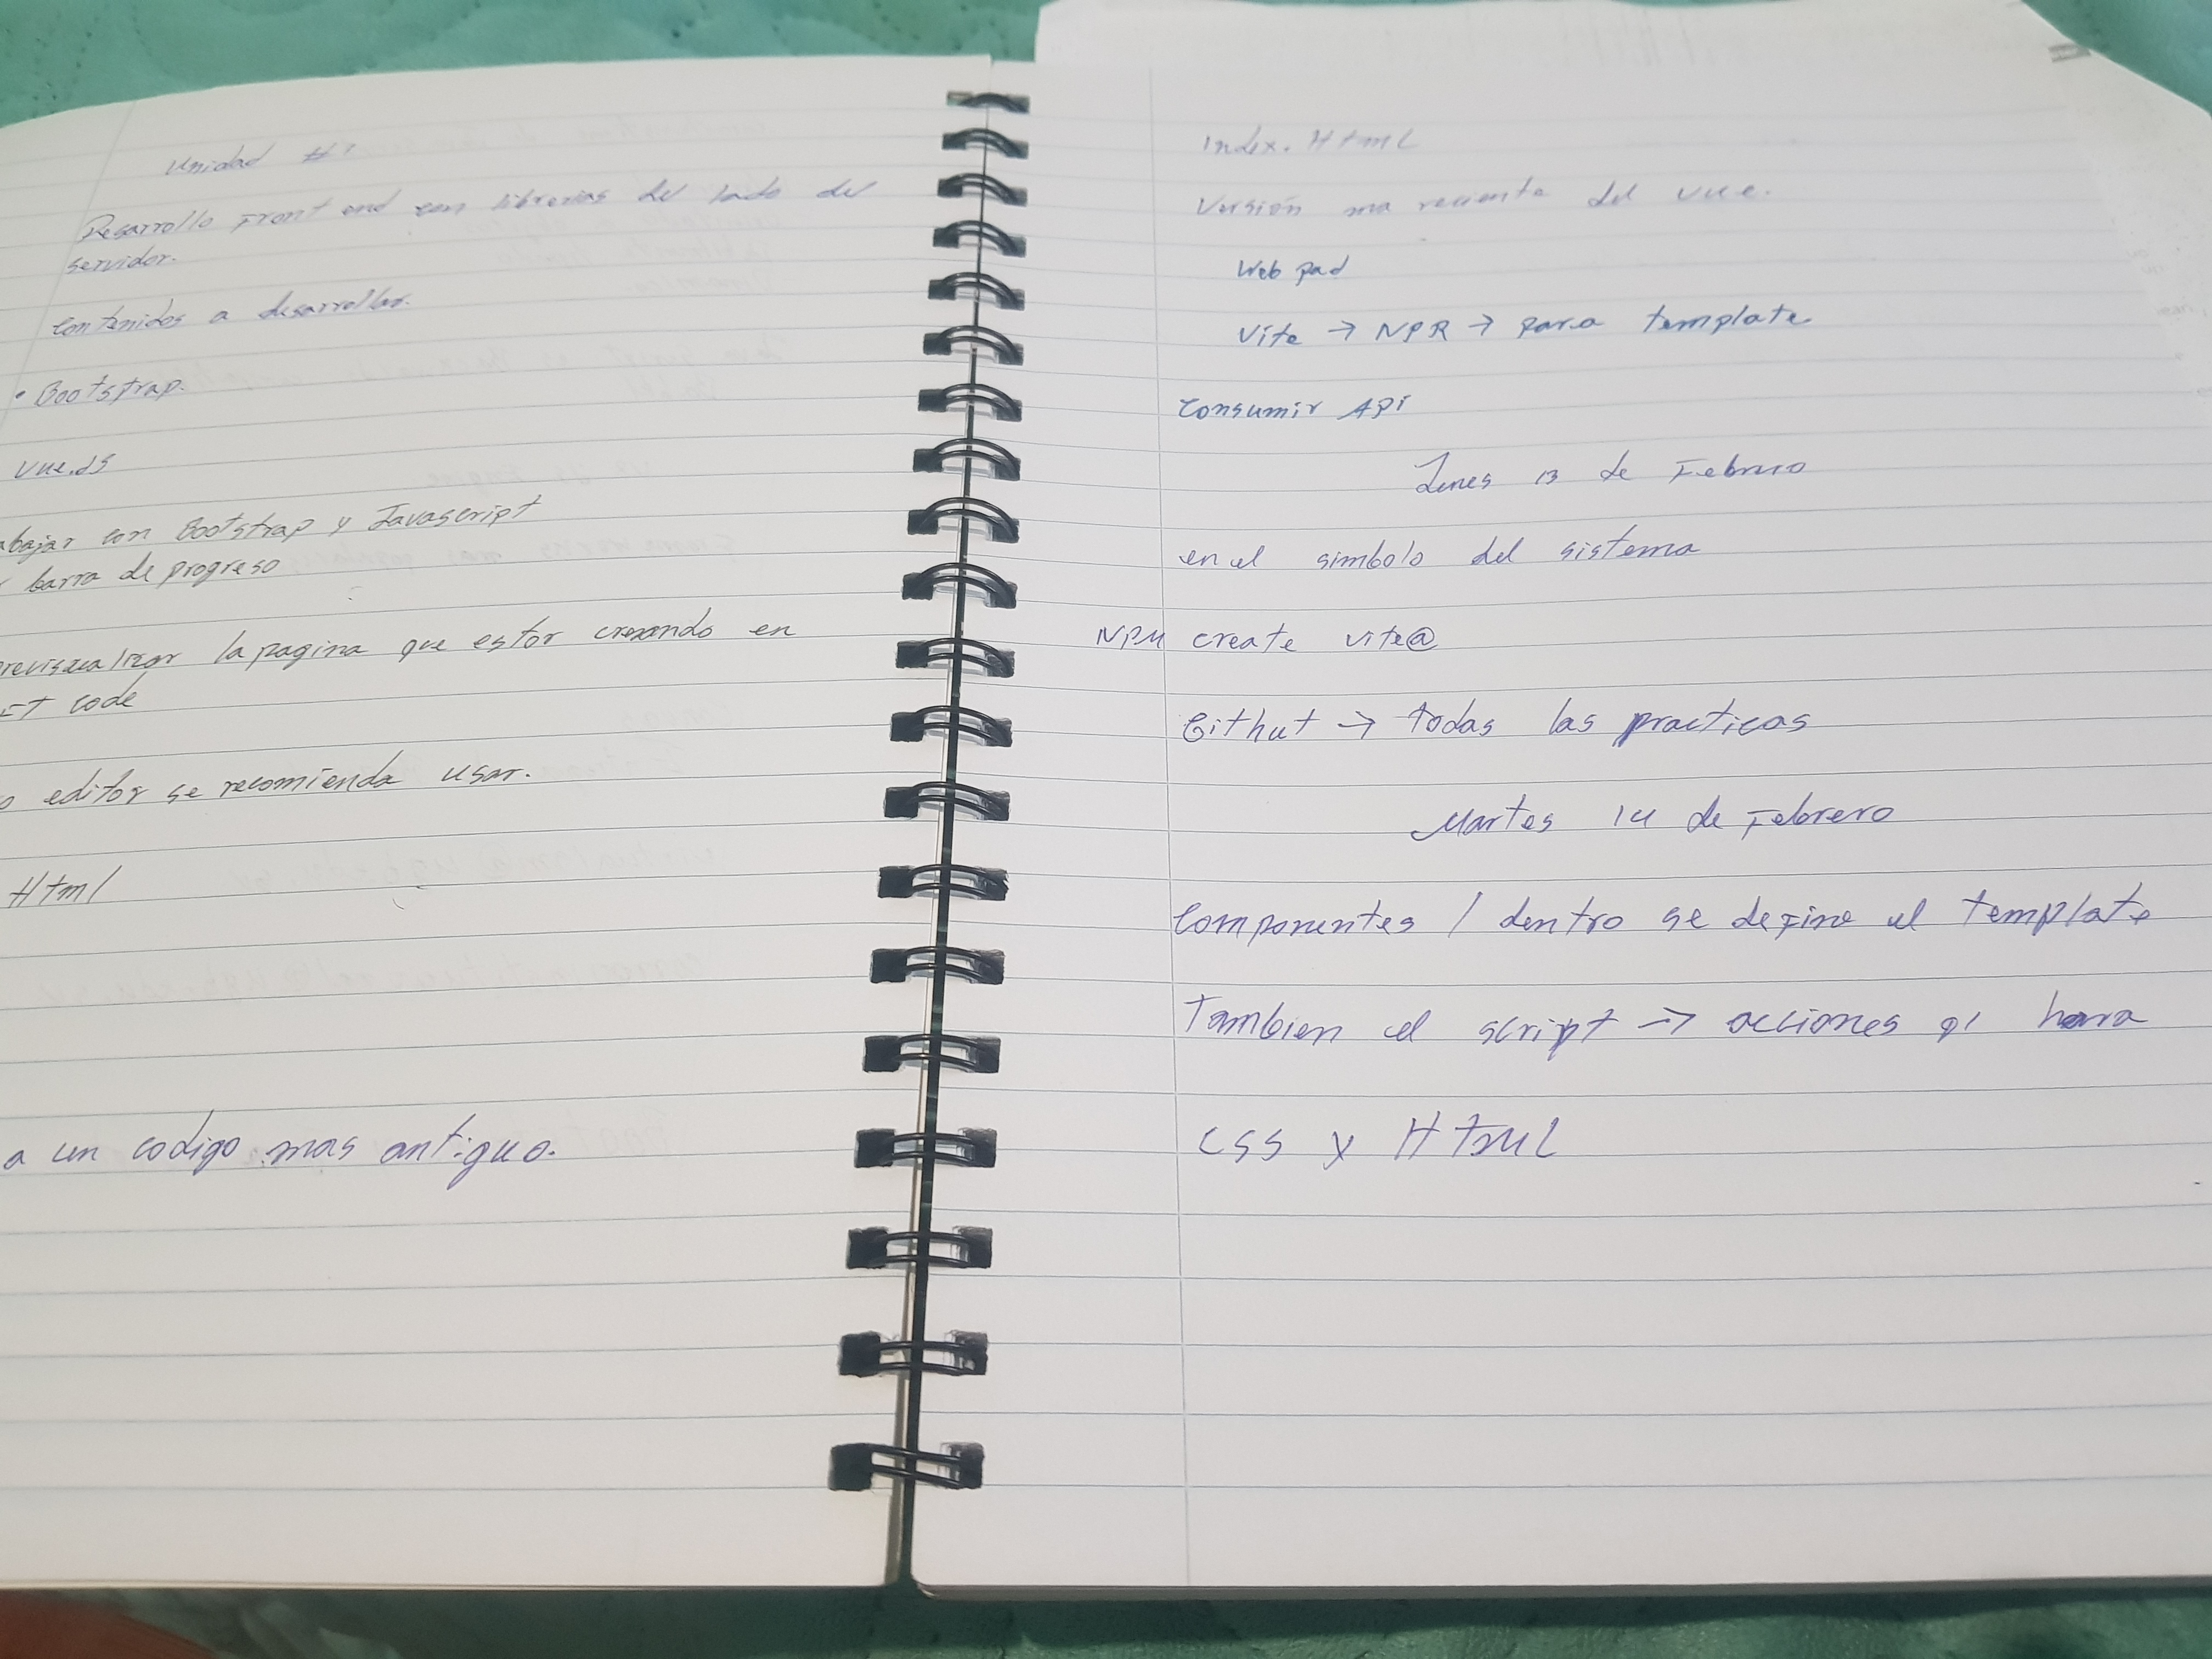 Unidad #
Desarrollo Front end con librerias del lado del
servidor.
Contenidos a desarrollar.
• Bootstrap.
Vue.JS
abajar con Bootstrap y Javascript
barra de progreso
previsualizar la pagina que estor creando en
code
o editor se recomienda usar.
Html
a un codigo mas antiguo.
Index. Html
Versión ma reciente del vue.
Web pad
Vite → NPR → para template
Consumir API
Lunes 13 de Febrero
en el simbolo del sistema
NPM create vite@
Githut → todas las practicas
Martes 14 de Febrero
Componentes / dentro se define el template
Tambien el script → acciones q' hara
CSS y Html